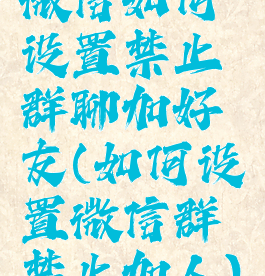 微信如何
设置禁止
群聊加好
友(如何设
置微信群
禁止加人)